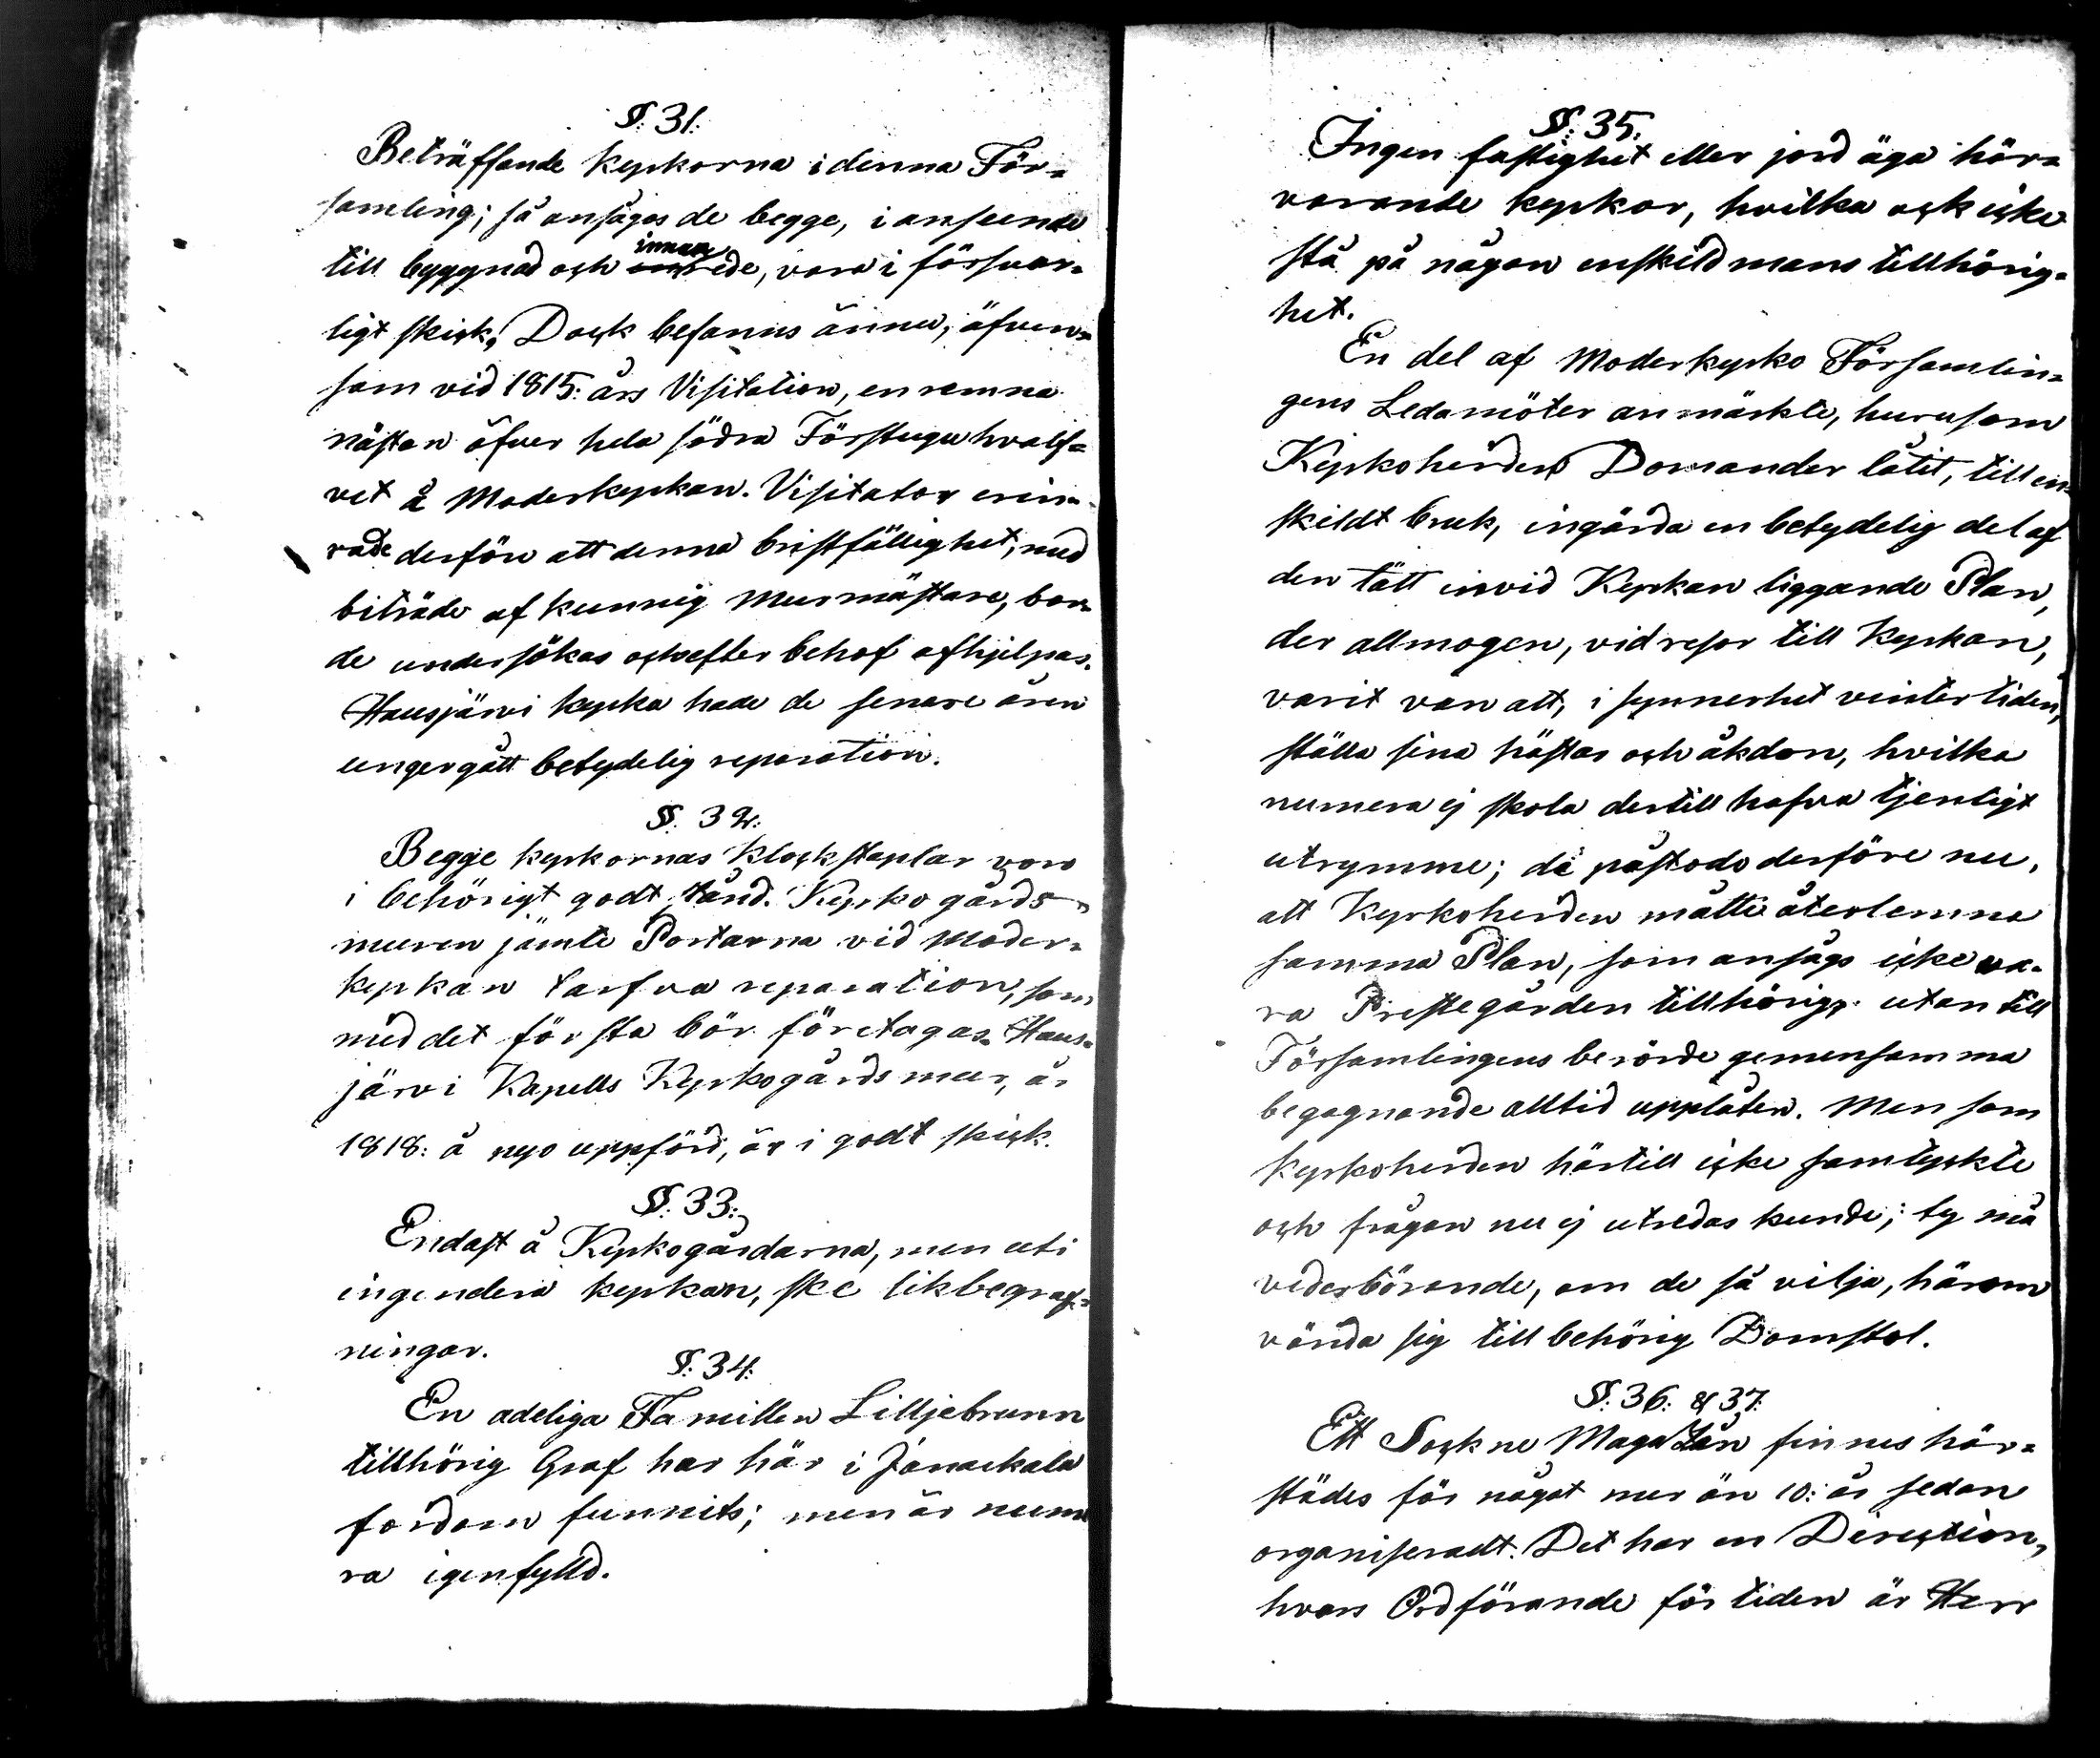 §: 31:
Beträffande kyrkorna i denna För=
samling; så ansågos de begge, i anseende
till byggnad och innanrede, vara i försvar=
ligt skick; Dock befanns ännu, äfven=
som vid 1815: års Visitation, en remna
nästan öfver hela södra Förstuguhvalf=
vet å Moderkyrkan. Visitator erin=
rade derföre att denna bristfällighet, med
biträde af kunnig Murmästare, bor=
de undersökas och efter behof afhjelpas.
Hausjärvi kyrka hade de senare åren
ungergått betydelig reparation.
§: 32:
Begge kyrkornas Klockstaplar voro
i behörigt godt stånd. Kyrkogårds=
muren jämte Portarna vid Moder=
kyrkan tarfva reparation, som
med det första bör företagas. Haus=
järvi Kapells Kyrkogårds mur, år
1818: å nyo uppförd, är i godt skick.
§: 33:
Endast å Kyrkogårdarna, men uti
ingendera kyrkan, ske likbegraf=
ningar.
§: 34:
En adeliga Familien Lilljebrunn
tillhörig Graf har här i Janackala
fordom funnits; men är nume
ra igenfylld.
§: 35:
Ingen fastighet eller jord äga här=
varande kyrkor, hvilka ock icke
stå på någon enskild mans tillhörig=
het.
En del af Moderkyrko Församlin=
gens Ledamöter anmärkte, hurusom
Kyrkoherden Domander låtit, till en=
skildt bruk, ingärda en betydelig del af
den tätt invid Kyrkan liggande Plan,
der allmogen, vid resor till Kyrkan,
varit van att, i synnerhet vintertiden,
ställa sina hästar och åkdon, hvilka
numera ej skola dertill hafva tjenligt
utrymme; de påstodo derföre nu,
att Kyrkoherden måtte återlemna
samma Plan, som ansågs icke va=
ra Prestegården tillhörig, utan till
Församlingens berörde gemensamma
begagnande alltid upplåten. Men som
Kyrkoherden härtill icke samtyckte
och frågan nu ej utredas kunde; ty må
vederbörande, om de så vilja, härom
vända sig till behörig Domstol.
§: 36: & 37:
Ett Sockne Magazin finnes här=
städes för något mer än 10: år sedan
organiseradt. Det har en Direction,
hvars Ordförande för tiden är Herr